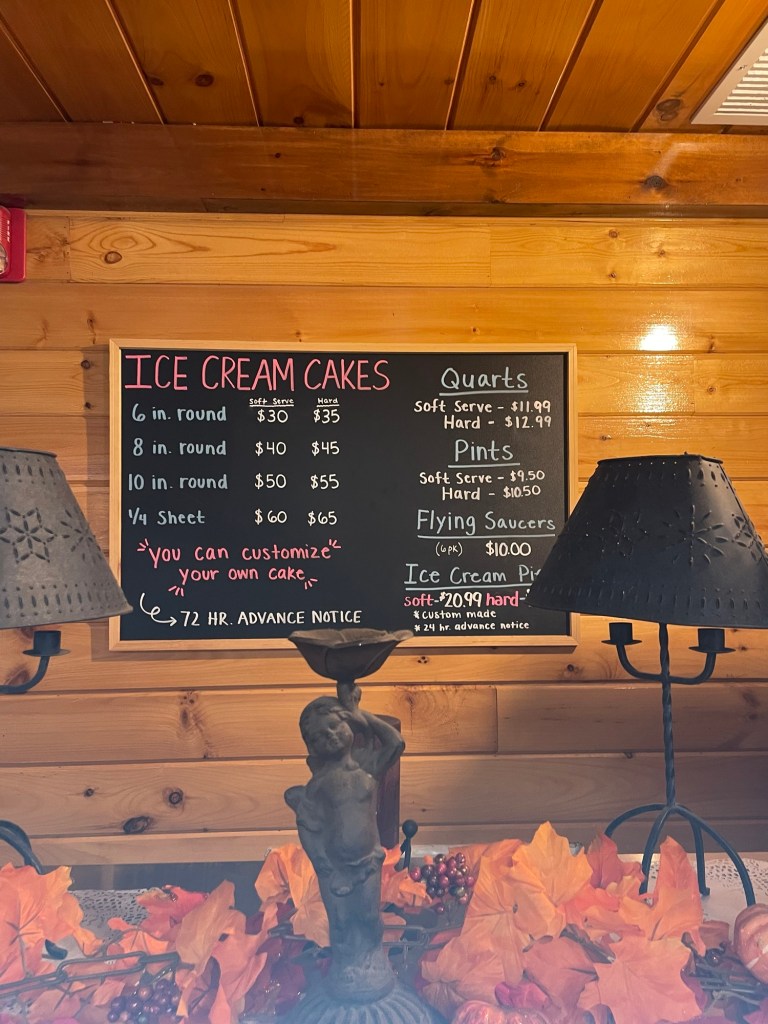 ICE CREAM CAKES
Soft Serve Hard
6 in. round $30 $35
8 in. round $40 $45
10 in. round $50 $55
1/4 Sheet $60 $65
"you can customize"
"your own cake"
→ 72 HR. ADVANCE NOTICE
Quarts
Soft Serve - $11.99
Hard - $12.99
Pints
Soft Serve - $9.50
Hard - $10.50
Flying Saucers
(6 pk) $10.00
Ice Cream
soft-$20.99 hard-
* custom made
* 24 hr. advance notice